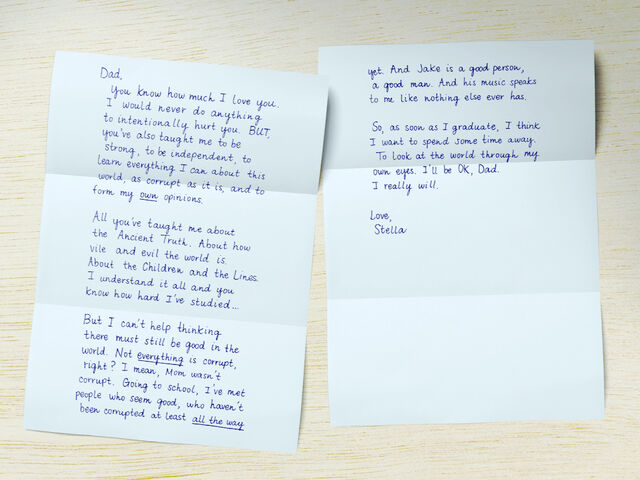 Dad,
You know how much I love you.
I would never do anything
to intentionally hurt you. BUT,
you've also taught me to be
strong, to be independent, to
learn everything I can about this
world, as corrupt as it is, and to
form my own opinions.
All you've taught me about
the Ancient Truth. About how
vile and evil the world is.
About the Children and the Lines.
I understand it all and you
know how hard I've studied...
But I can't help thinking
there must still be good in the
world. Not everything is corrupt,
right? I mean, Mom wasn't
corrupt. Going to school, I've met
people who seem good, who haven't
been corrupted at least all the way
yet. And Jake is a good person,
a good man. And his music speaks
to me like nothing else ever has.
So, as soon as I graduate, I think
I want to spend some time away.
To look at the world through my
own eyes. I'll be OK, Dad.
I really will.
Love,
Stella